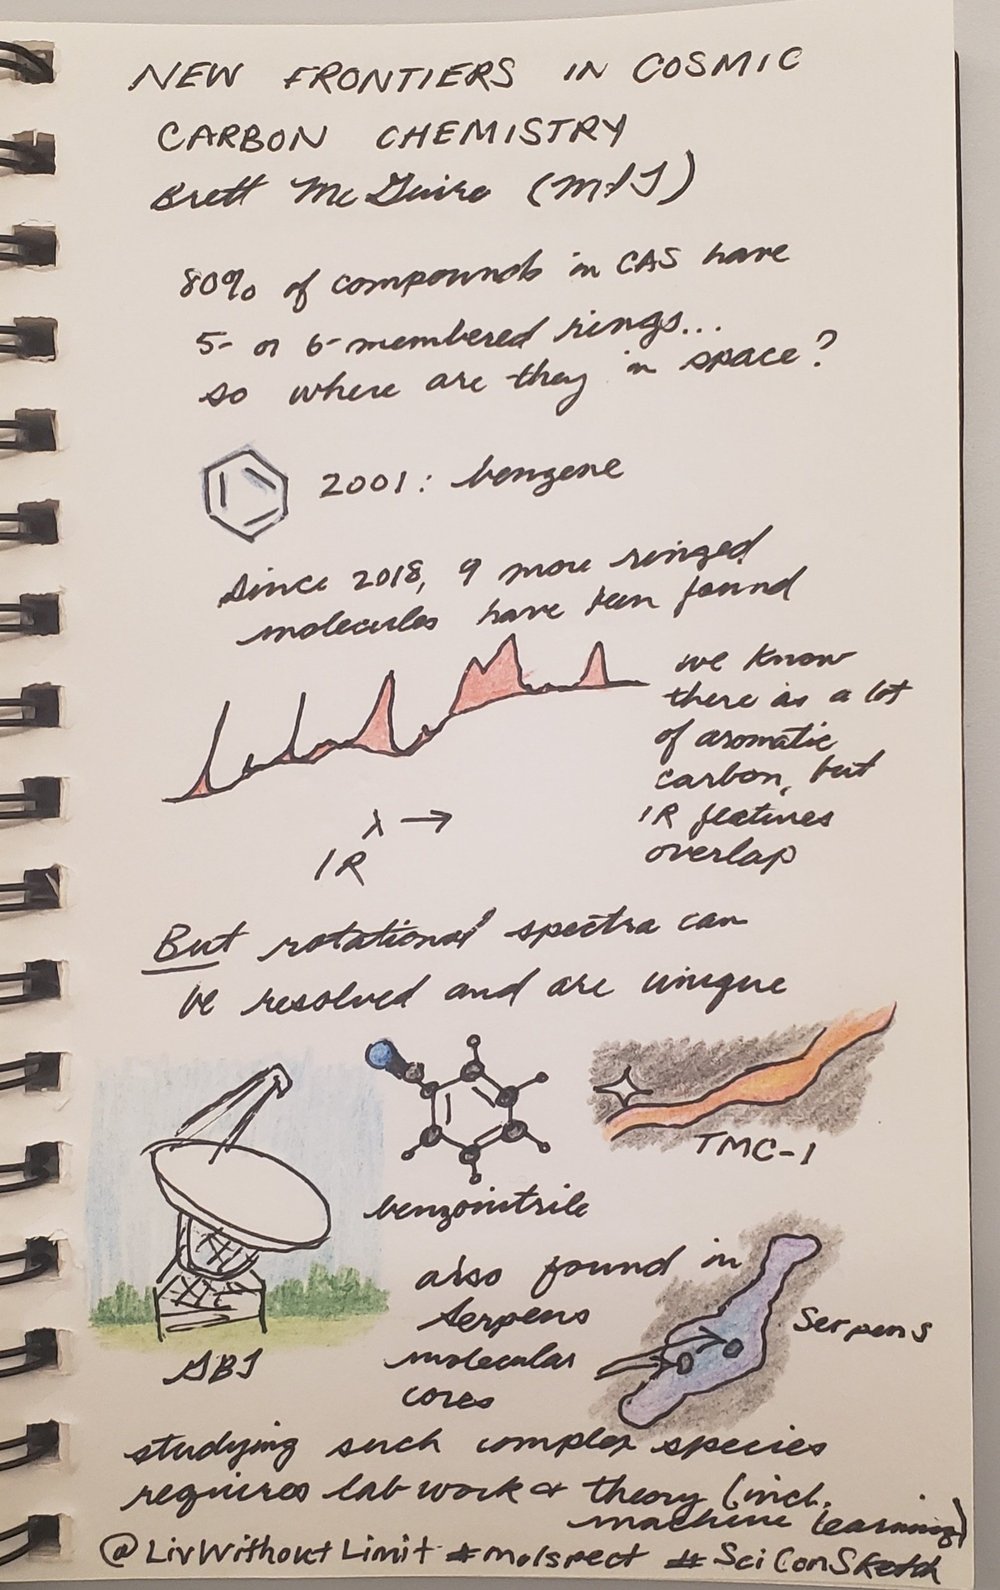 NEW FRONTIERS IN COSMIC
CARBON CHEMISTRY
Brett McGuire (MIT)
80% of compounds in CAS have
5- or 6-membered rings...
so where are they in space?
2001: benzene
since 2018, 9 more ringed
molecules have been found
we know
there is a lot
of aromatic
carbon, but
IR features
overlap
λ →
IR
But rotational spectra can
be resolved and are unique
TMC-1
benzonitrile
also found in
Serpens
molecular
cores
Serpens
GBT
studying such complex species
requires lab work & theory (incl.
machine learning)
@LivWithoutLimit #molspect #SciConSketch